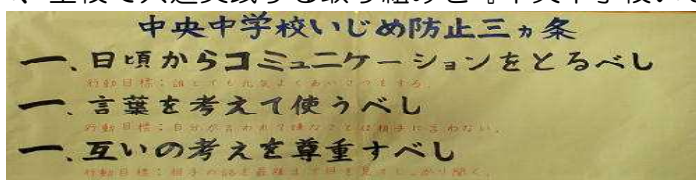 、全校で共通実践する取り組みを『中央中学校いじ
中央中学校いじめ防止三ヵ条
一、日頃からコミュニケーションをとるべし
行動目標：誰にでも元気よくあいさつをする。
一、言葉を考えて使うべし
行動目標：自分が言われて嫌なことは相手に言わない。
一、互いの考えを尊重すべし
行動目標：相手の話を最後まで目を見てしっかり聞く。